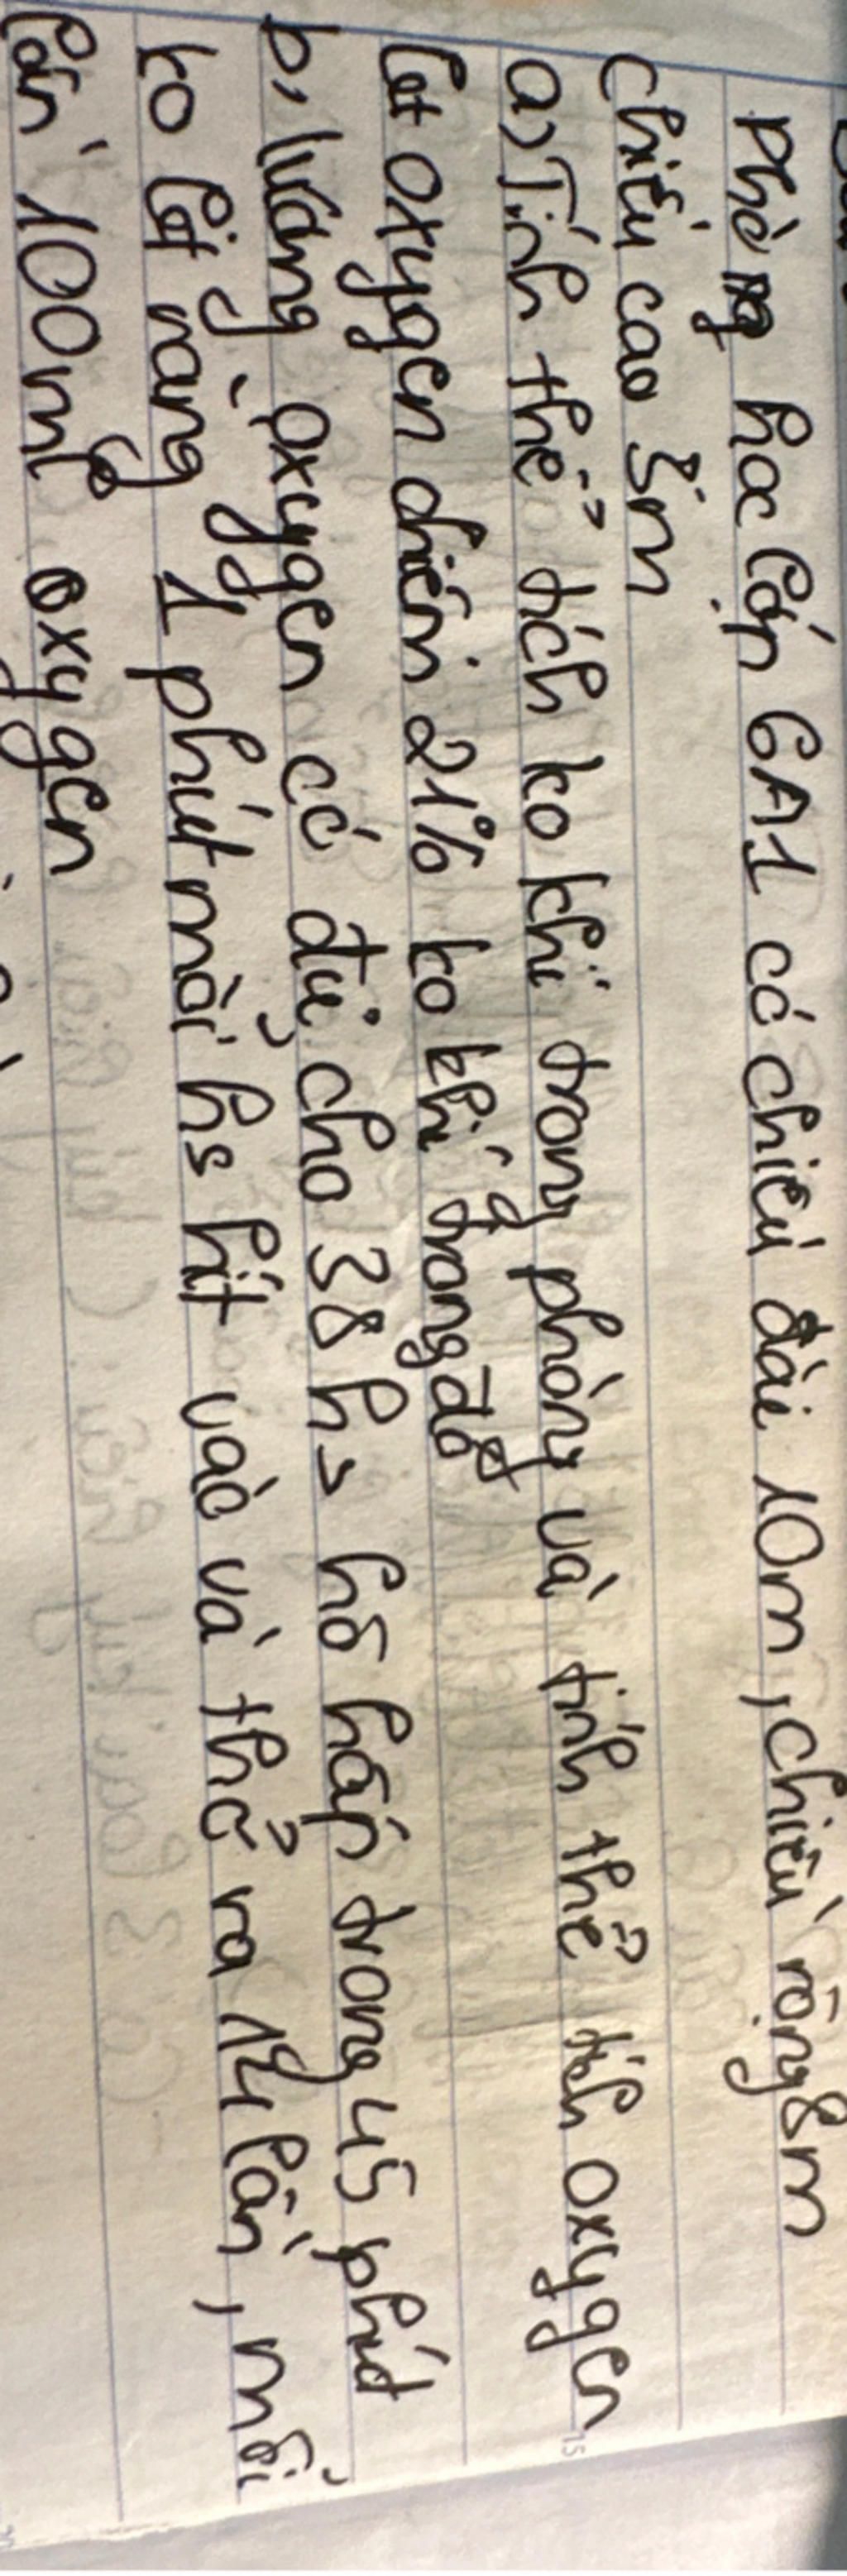 Phòng học lớp 6A1 có chiều dài 10m, chiều rộng 8m
chiều cao 5m
a) Tính thể tích ko khí trong phòng và tính thể tích oxygen
bt oxygen chiếm 21% ko khí trong đó
b, lượng oxygen có đủ cho 38 hs hô hấp trong 45 phút
ko bt rằng 1 phút mỗi hs hít vào và thở ra 14 lần, mỗi
lần 100ml oxygen